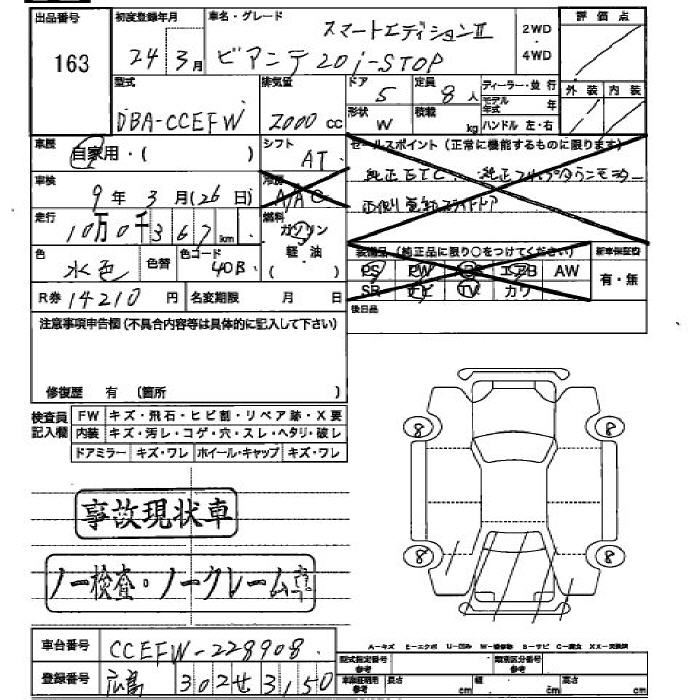 出品番号
163
初度登録年月
24 3月
車名・グレード
スマートエディションⅡ
ビアンテ 20 i-STOP
2WD
・
4WD
評価点
外装 内装
型式
DBA-CCEFW
排気量
2000 cc
ドア
5
定員
8人
形状
W
積載
kg
ディーラー・並行
モデル年式 年
ハンドル 左・右
車歴
自家用・( )
シフト
AT
セールスポイント(正常に機能するものに限ります)
純正ETC
車検
9年 3月(26日)
冷房
AAC
走行
10万0千367km
燃料
ガソリン
軽・油
( )
色
水色
色替
色コード
40B
装備品(純正品に限り○をつけてください)
PS PW エアB AW
SR ナビ TV カワ
新車保証書
有・無
R券 14210 円
名変期限 月 日
後日品
注意事項申告欄(不具合内容等は具体的に記入して下さい)
修復歴 有 (箇所 )
検査員記入欄
FW キズ・飛石・ヒビ割・リペア跡・X要
内装 キズ・汚レ・コゲ・穴・スレ・ヘタリ・破レ
ドアミラー キズ・ワレ ホイール・キャップ キズ・ワレ
8 8
8 8
事故現状車
ノー検査・ノークレーム
A-キズ E-エクボ U-凹ミ W-補修跡 S-サビ C-腐食 XX-交換済
車台番号
CCEFW-228908
登録番号
広島 302 せ 3150
型式指定番号
参考
類別区分番号
参考
車庫証明用
参考
長さ cm
幅 cm
高さ cm